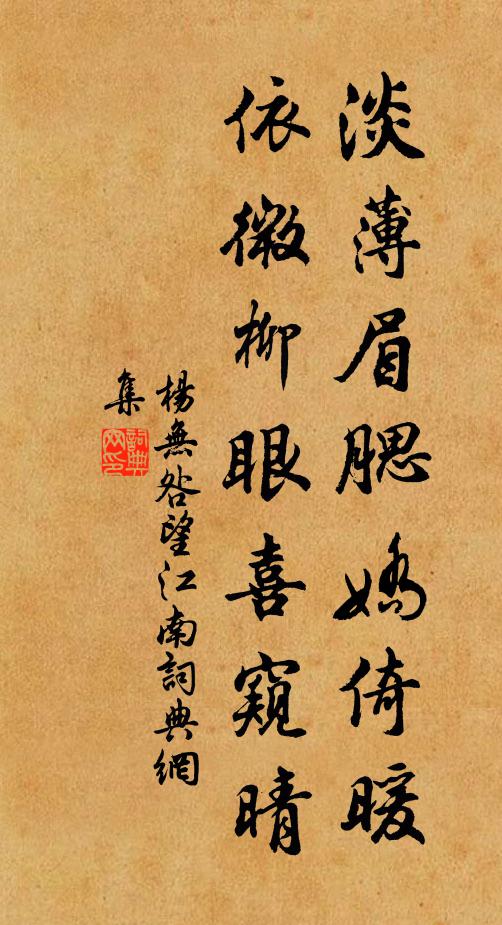 淡薄眉腮嬌倚暖
依微柳眼喜窺晴
楊無咎望江南詞典網
集
詞典
网印